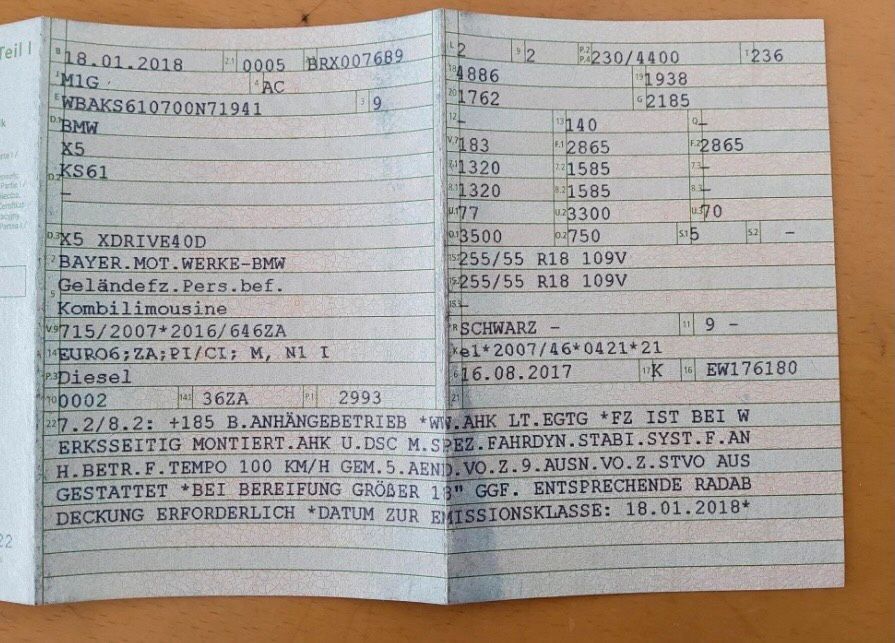 Teil I
B 18.01.2018 2.1 0005 BRX007689
J M1G 4 AC
E WBAKS610700N71941 3 9
D.1 BMW
X5
KS61
D.2 –
D.3 X5 XDRIVE40D
2 BAYER.MOT.WERKE-BMW
5 Geländefz.Pers.bef.
Kombilimousine
V.9 715/2007*2016/646ZA
14 EURO6;ZA;PI/CI; M, N1 I
P.3 Diesel
10 0002 14.1 36ZA P.1 2993
L 2 9 2 P.2 P.4 230/4400 T 236
18 4886 19 1938
20 1762 G 2185
12 – 13 140 Q –
V.7 183 F.1 2865 F.2 2865
7.1 1320 7.2 1585 7.3 –
8.1 1320 8.2 1585 8.3 –
U.1 77 U.2 3300 U.3 70
O.1 3500 O.2 750 S.1 5 S.2 –
15.1 255/55 R18 109V
15.2 255/55 R18 109V
15.3 –
R SCHWARZ – 11 9 –
K e1*2007/46*0421*21
6 16.08.2017 17 K 16 EW176180
21
22 7.2/8.2: +185 B.ANHÄNGEBETRIEB *WW.AHK LT.EGTG *FZ IST BEI W
ERKSSEITIG MONTIERT.AHK U.DSC M.SPEZ.FAHRDYN.STABI.SYST.F.AN
H.BETR.F.TEMPO 100 KM/H GEM.5.AEND.VO.Z.9.AUSN.VO.Z.STVO AUS
GESTATTET *BEI BEREIFUNG GRÖßER 18" GGF. ENTSPRECHENDE RADAB
DECKUNG ERFORDERLICH *DATUM ZUR EMISSIONSKLASSE: 18.01.2018*
22